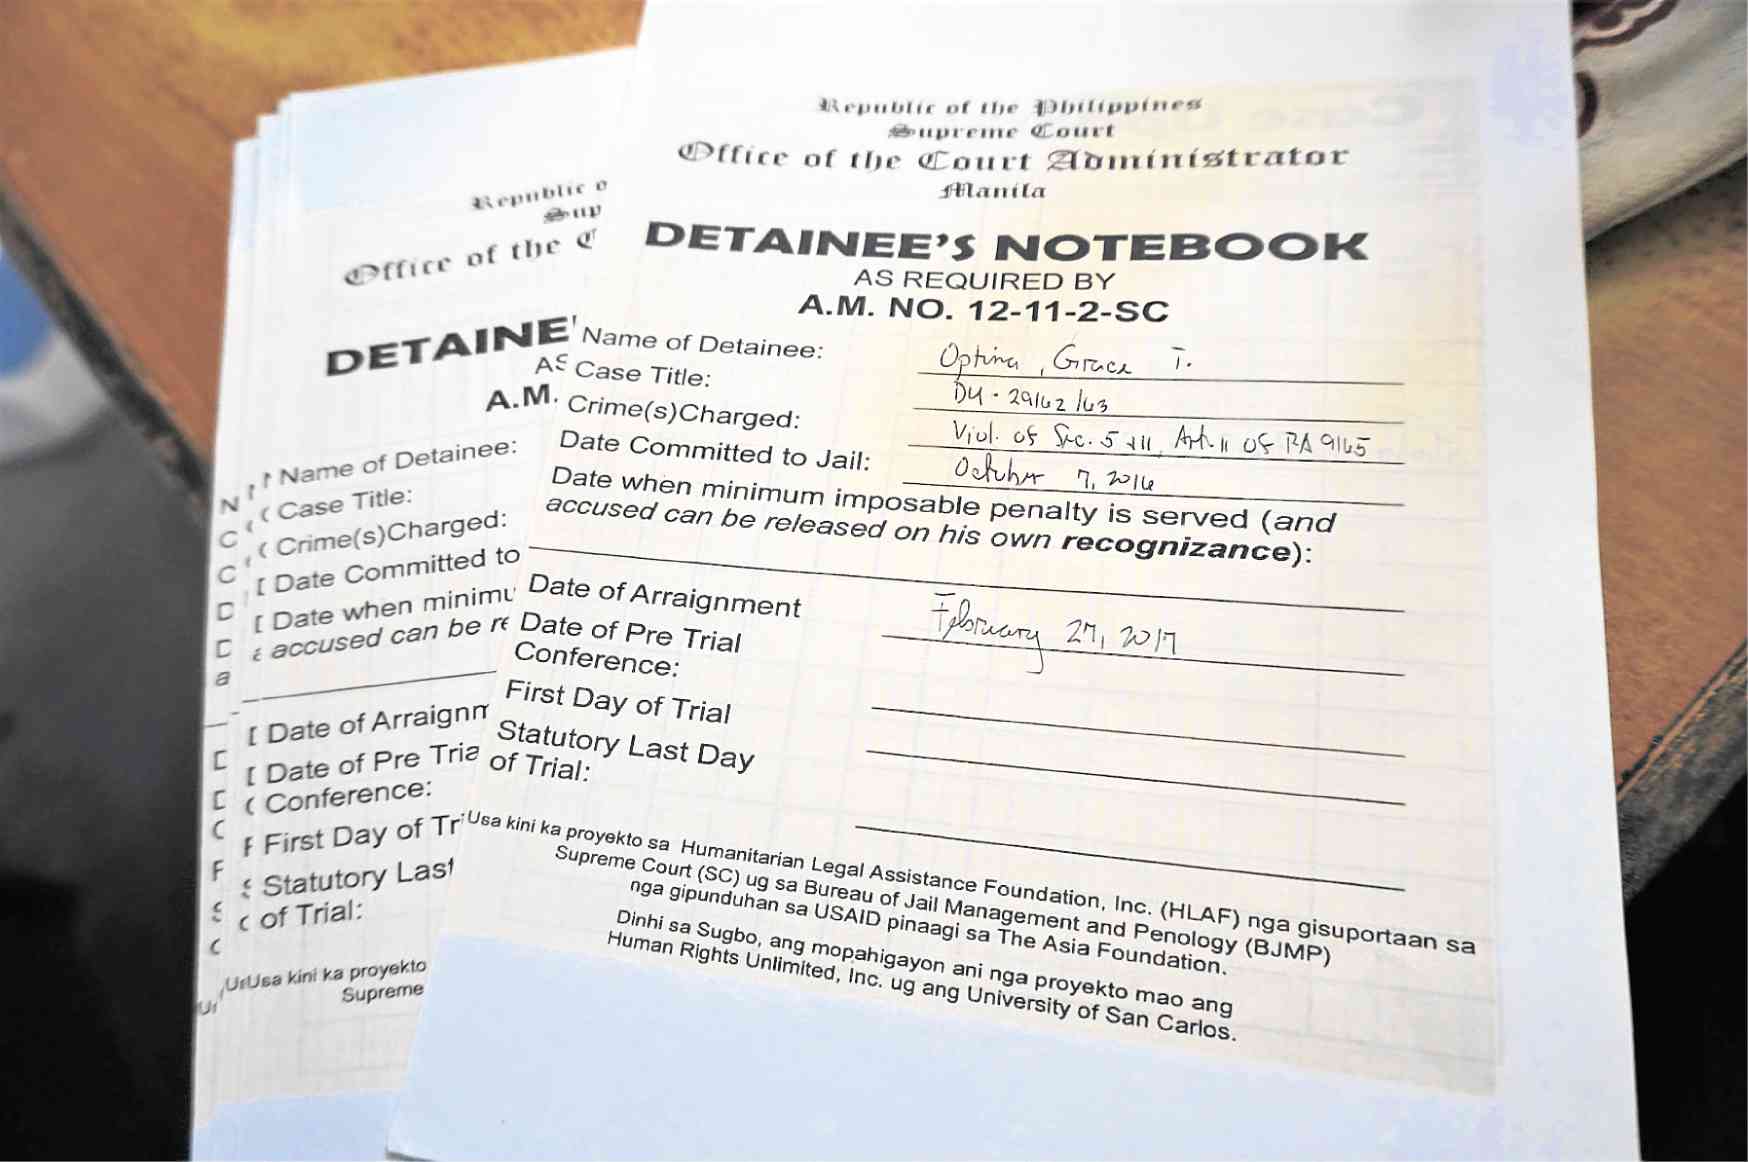 Republic of the Philippines
Supreme Court
Office of the Court Administrator
Manila
DETAINEE'S NOTEBOOK
AS REQUIRED BY
A.M. NO. 12-11-2-SC
Name of Detainee: Optina, Grace T.
Case Title: DU-29162/63
Crime(s)Charged: Viol. of Sec. 5 & 11, Art. II of RA 9165
Date Committed to Jail: October 7, 2016
Date when minimum imposable penalty is served (and
accused can be released on his own recognizance):
Date of Arraignment February 27, 2017
Date of Pre Trial
Conference:
First Day of Trial
Statutory Last Day
of Trial:
Usa kini ka proyekto sa Humanitarian Legal Assistance Foundation, Inc. (HLAF) nga gisuportaan sa
Supreme Court (SC) ug sa Bureau of Jail Management and Penology (BJMP)
nga gipunduhan sa USAID pinaagi sa The Asia Foundation.
Dinhi sa Sugbo, ang mopahigayon ani nga proyekto mao ang
Human Rights Unlimited, Inc. ug ang University of San Carlos.
Republic o
Sup
Office of the C
DETAINE'
AS
A.M.
Name of Detainee:
Case Title:
Crime(s)Charged:
Date Committed to
Date when minimu
accused can be re
Date of Arraignm
Date of Pre Tria
Conference:
First Day of Tri
Statutory Last
of Trial:
Usa kini ka proyekto
Supreme